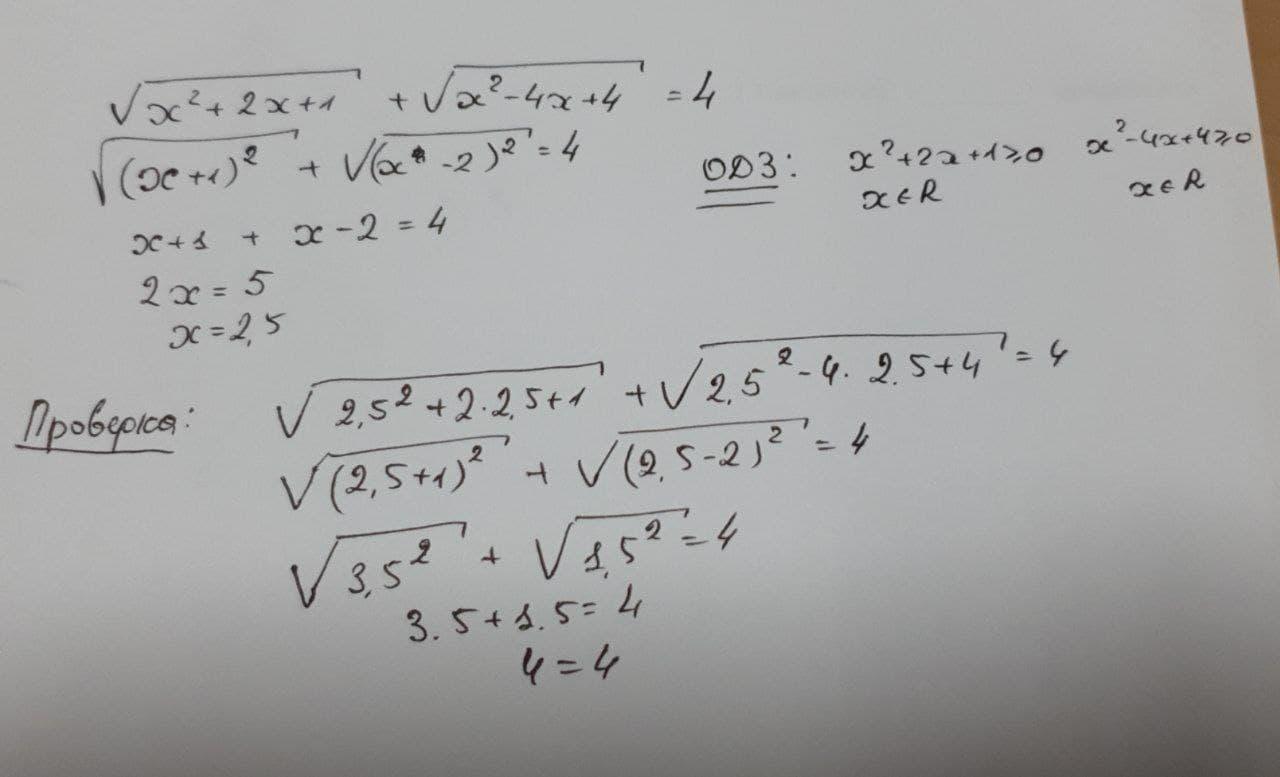 √(x² + 2x + 1) + √(x² - 4x + 4) = 4
√((x + 1)²) + √((x - 2)²) = 4
ОДЗ: x² + 2x + 1 ≥ 0 x² - 4x + 4 ≥ 0
x ∈ R x ∈ R
x + 1 + x - 2 = 4
2x = 5
x = 2,5
Проверка: √(2,5² + 2·2,5 + 1) + √(2,5² - 4·2,5 + 4) = 4
√((2,5 + 1)²) + √((2,5 - 2)²) = 4
√(3,5²) + √(1,5²) = 4
3.5 + 1.5 = 4
4 = 4